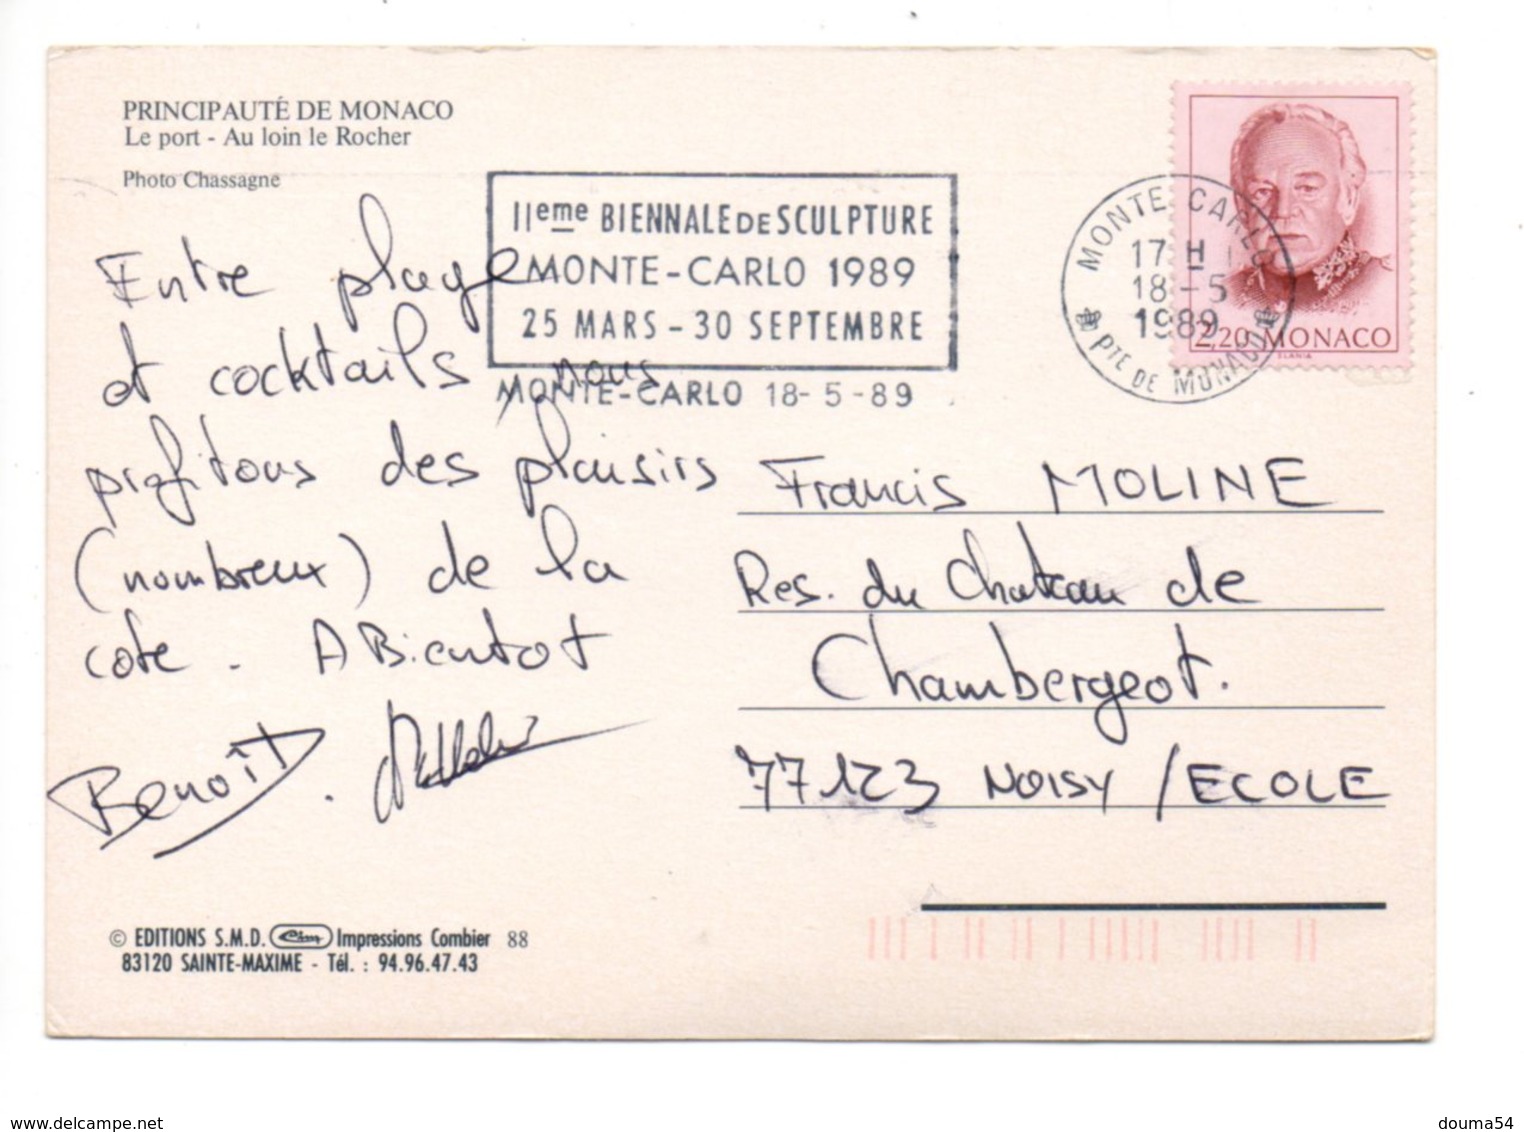 PRINCIPAUTÉ DE MONACO
Le port - Au loin le Rocher
Photo Chassagne
IIeme BIENNALE DE SCULPTURE
MONTE-CARLO 1989
25 MARS - 30 SEPTEMBRE
MONTE-CARLO 18-5-89
MONTE CARLO
17 H
18-5
1989
PTE DE MONACO
2,20 MONACO
SLANIA
Entre plage
et cocktails, nous
profitons des plaisirs
(nombreux) de la
cote. A Bientot
Benoît.
Francis MOLINE
Res. du Chateau de
Chambergeot.
77123 NOISY / ECOLE
© EDITIONS S.M.D. Cim Impressions Combier 88
83120 SAINTE-MAXIME - Tél. : 94.96.47.43
www.delcampe.net
douma54